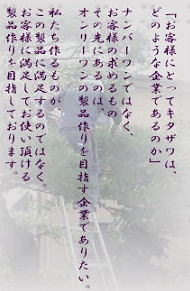 「お客様にとってキタザワは、
どのような企業であるのか」
ナンバーワンではなく、
お客様の求めるもの
その先にあるのは、
オンリーワンの製品作りを目指す企業でありたい。
私たち作るものが
この製品に満足するのではなく。
お客様に満足してお使い頂ける
製作りを目指しております。